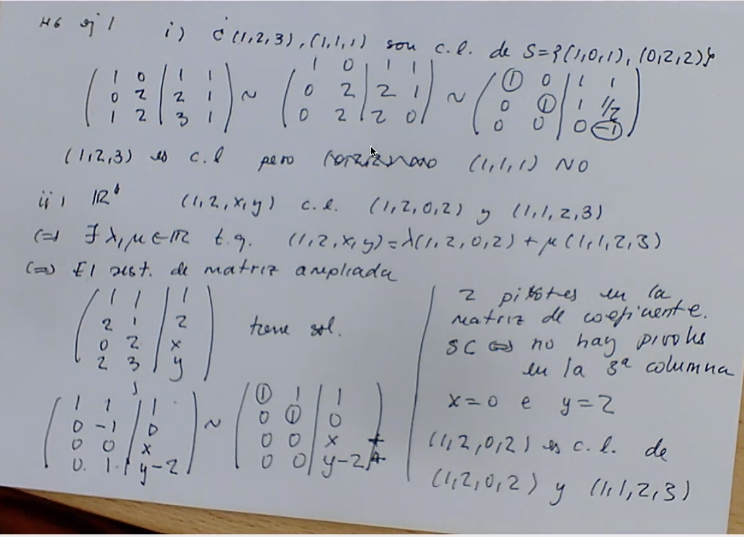 H6 ej 1 i) ¿(1,2,3), (1,1,1) son c.l. de S={(1,0,1), (0,2,2)}?
( 1 0 | 1 1
0 2 | 2 1
1 2 | 3 1 ) ~ ( 1 0 | 1 1
0 2 | 2 1
0 2 | 2 0 ) ~ ( 1 0 | 1 1
0 1 | 1 1/2
0 0 | 0 -1 )
(1,2,3) es c.l pero (1,1,1) NO
ii) (1,2,x,y) c.l. (1,2,0,2) y (1,1,2,3)
⇔ ∃ λ,μ ∈ ℝ t.q. (1,2,x,y)=λ(1,2,0,2)+μ(1,1,2,3)
⇔ El sist. de matriz ampliada
( 1 1 | 1
2 1 | 2
0 2 | x
2 3 | y ) tiene sol.
( 1 1 | 1
0 -1 | 0
0 0 | x
0 1 | y-2 ) ~ ( 1 1 | 1
0 1 | 0
0 0 | x
0 0 | y-2 )
2 pivotes en la
matriz de coeficiente.
SC ⇔ no hay pivotes
en la 3ª columna
x=0 e y=2
(1,2,0,2) es c.l. de
(1,2,0,2) y (1,1,2,3)